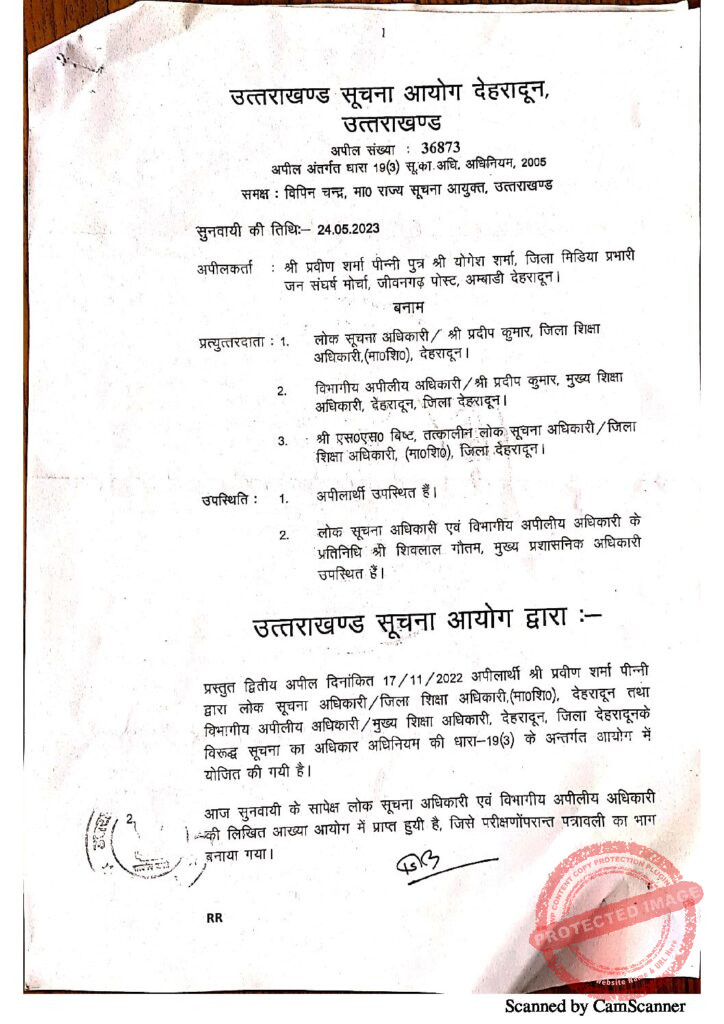 1
उत्तराखण्ड सूचना आयोग देहरादून,
उत्तराखण्ड
अपील संख्या : 36873
अपील अंतर्गत धारा 19(3) सू.का.अधि. अधिनियम, 2005
समक्ष : विपिन चन्द्र, मा0 राज्य सूचना आयुक्त, उत्तराखण्ड
सुनवायी की तिथिः– 24.05.2023
अपीलकर्ता : श्री प्रवीण शर्मा पीन्नी पुत्र श्री योगेश शर्मा, जिला मिडिया प्रभारी
जन संघर्ष मोर्चा, जीवनगढ़ पोस्ट, अम्बाडी देहरादून।
बनाम
प्रत्युत्तरदाता : 1. लोक सूचना अधिकारी/ श्री प्रदीप कुमार, जिला शिक्षा
अधिकारी,(मा0शि0), देहरादून।
2. विभागीय अपीलीय अधिकारी/श्री प्रदीप कुमार, मुख्य शिक्षा
अधिकारी, देहरादून, जिला देहरादून।
3. श्री एस0एस0 बिष्ट, तत्कालीन लोक सूचना अधिकारी/जिला
शिक्षा अधिकारी, (मा0शि0), जिला देहरादून।
उपस्थिति : 1. अपीलार्थी उपस्थित हैं।
2. लोक सूचना अधिकारी एवं विभागीय अपीलीय अधिकारी के
प्रतिनिधि श्री शिवलाल गौतम, मुख्य प्रशासनिक अधिकारी
उपस्थित हैं।
उत्तराखण्ड सूचना आयोग द्वारा :–
प्रस्तुत द्वितीय अपील दिनांकित 17/11/2022 अपीलार्थी श्री प्रवीण शर्मा पीन्नी
द्वारा लोक सूचना अधिकारी/जिला शिक्षा अधिकारी,(मा0शि0), देहरादून तथा
विभागीय अपीलीय अधिकारी/मुख्य शिक्षा अधिकारी, देहरादून, जिला देहरादूनके
विरूद्ध सूचना का अधिकार अधिनियम की धारा–19(3) के अन्तर्गत आयोग में
योजित की गयी है।
आज सुनवायी के सापेक्ष लोक सूचना अधिकारी एवं विभागीय अपीलीय अधिकारी
की लिखित आख्या आयोग में प्राप्त हुयी है, जिसे परीक्षणोंपरान्त पत्रावली का भाग
बनाया गया।
RR
WP CONTENT COPY PROTECTION PLUGIN
PROTECTED IMAGE
Website Name & URL Here
Scanned by CamScanner